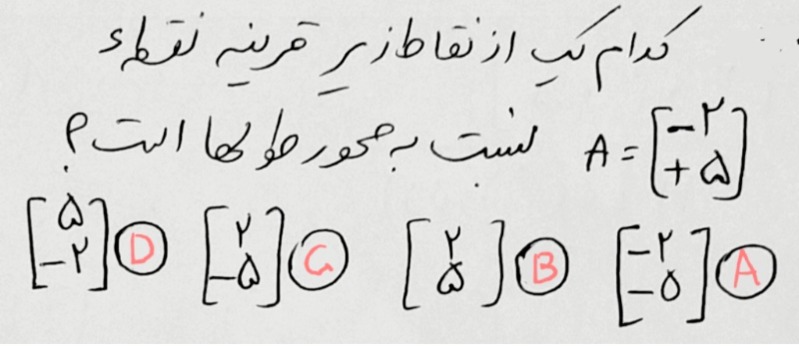 کدام یک از نقاط زیر قرینه نقطهء
A = [−۲ +۵] نسبت به محور طولها است؟
A [−۲ −۵] B [۲ ۵] C [۲ −۵] D [۵ −۲]